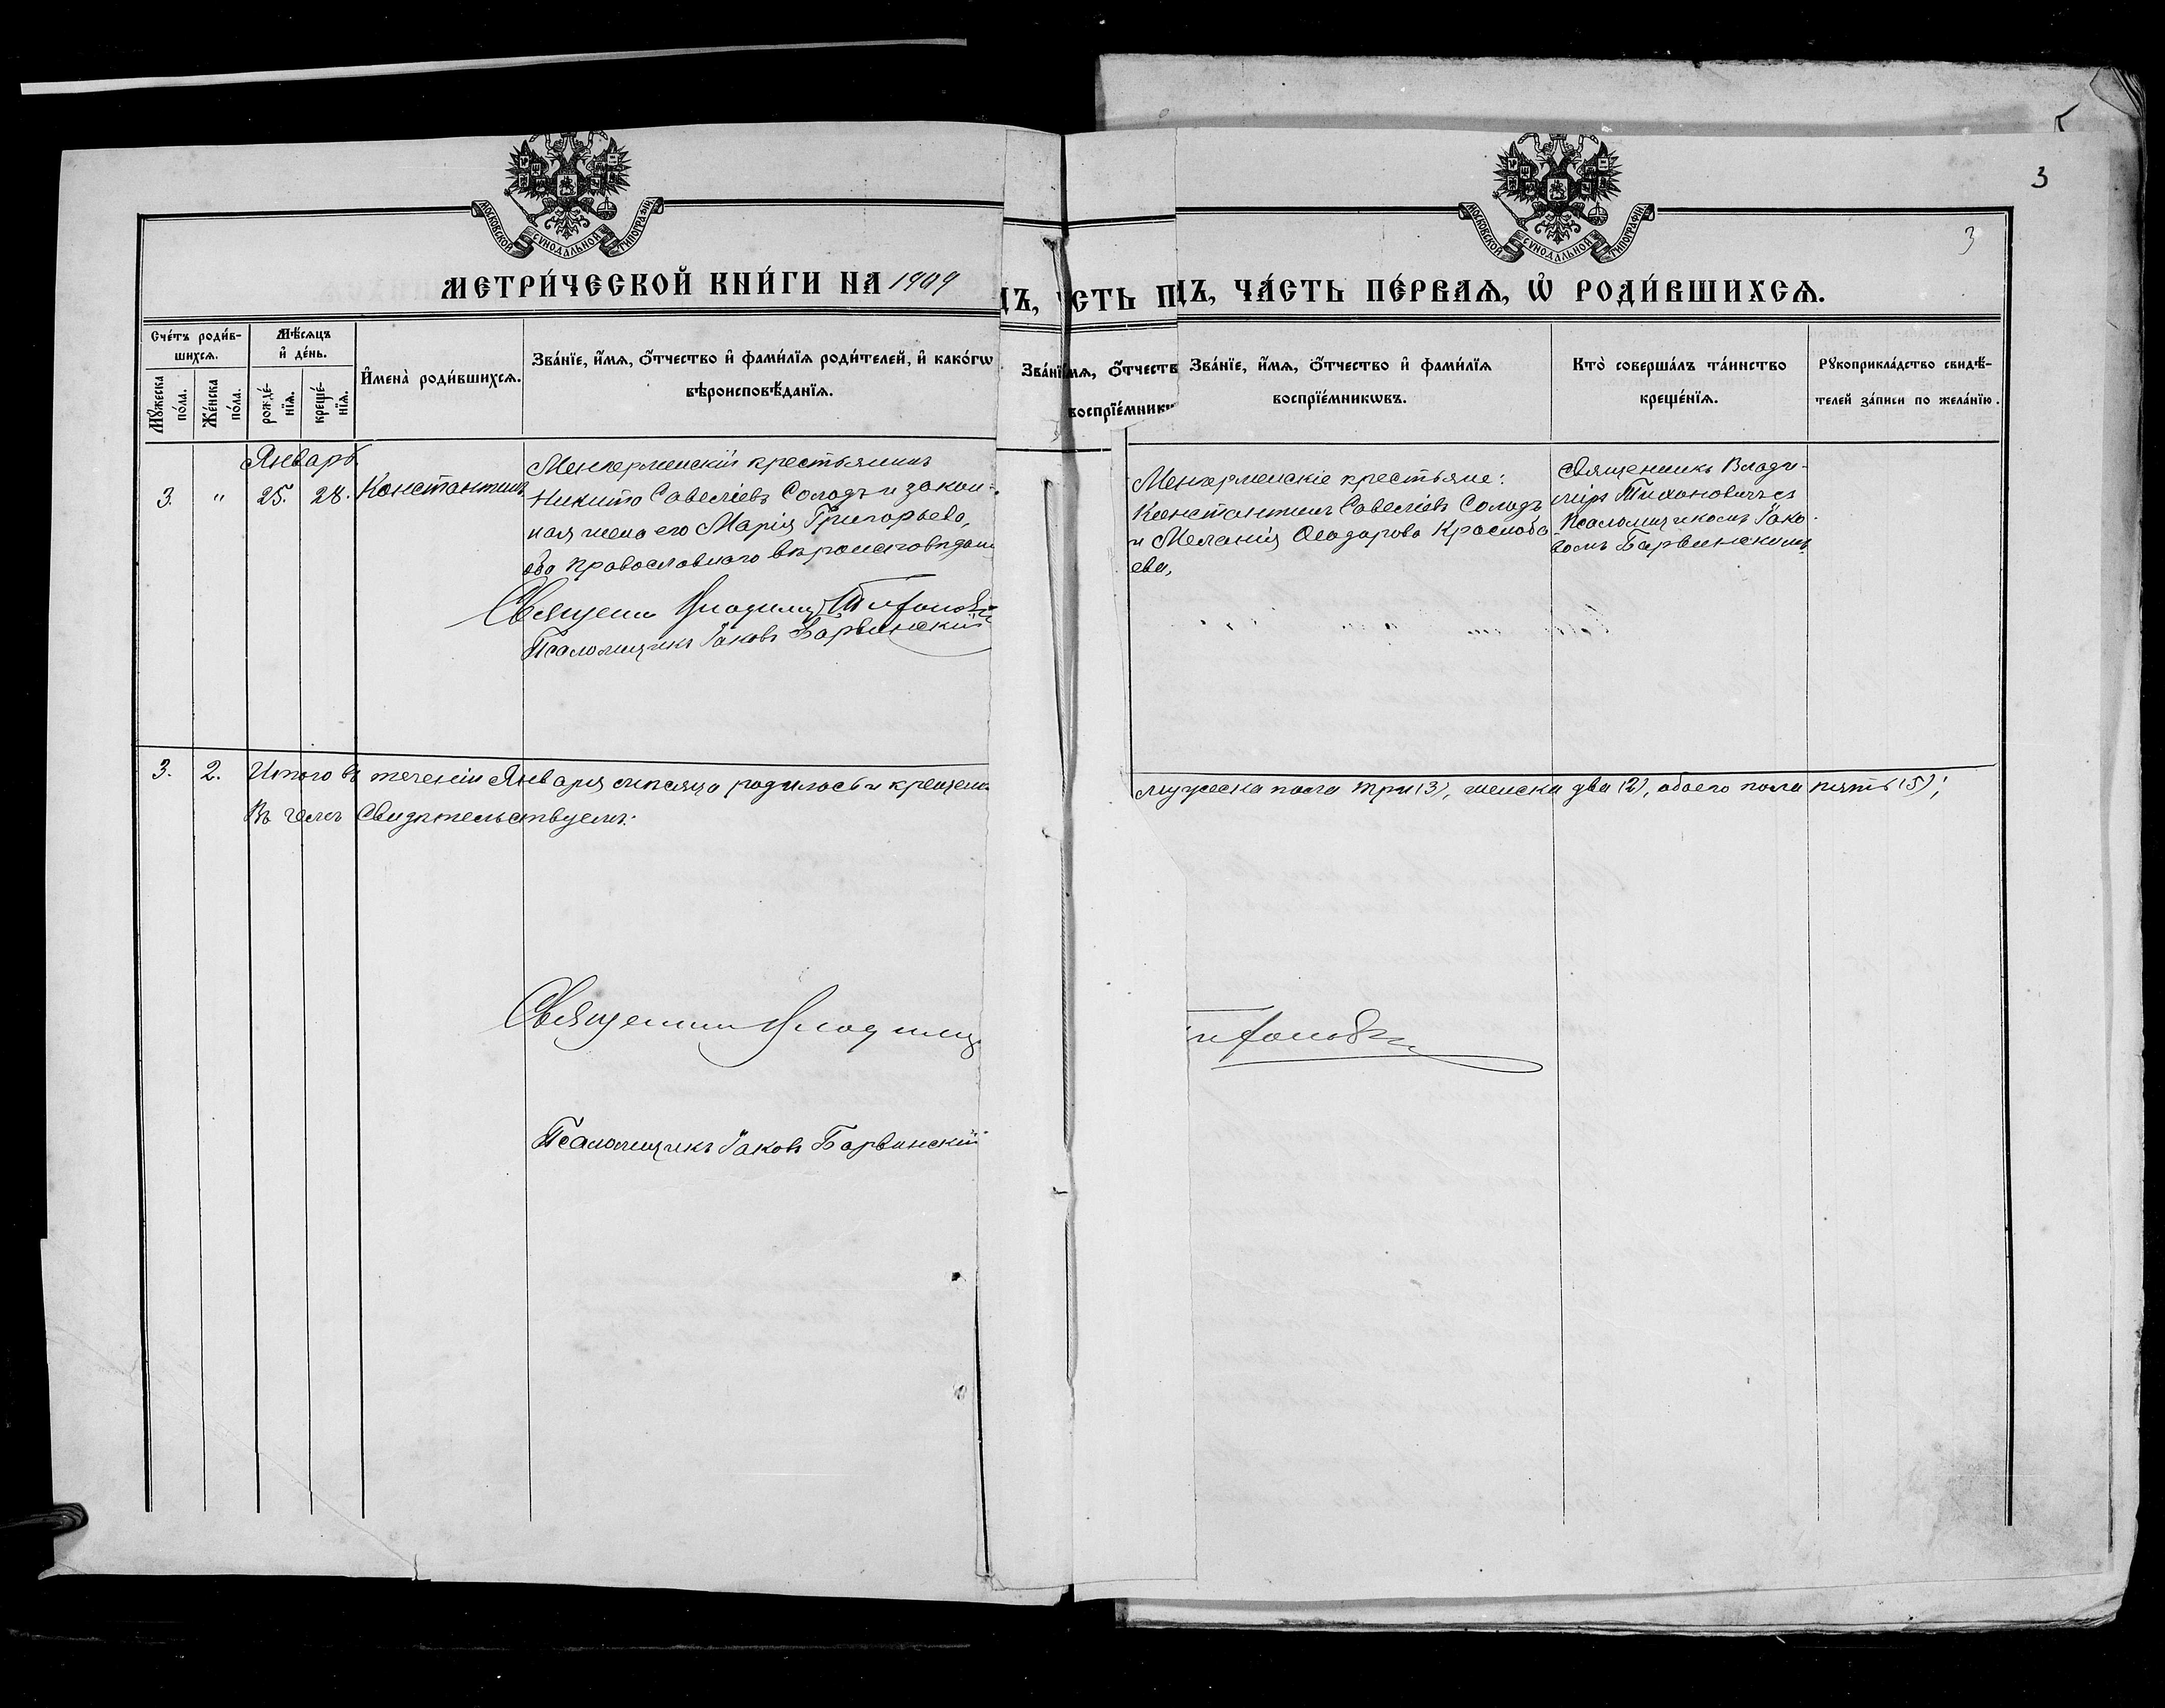 3
3
МОСКОВСКОЙ СѴНОДАЛЬНОЙ ТИПОГРАФІИ
МОСКОВСКОЙ СѴНОДАЛЬНОЙ ТИПОГРАФІИ
МЕТРИ́ЧЕСКОЙ КНИ́ГИ НА 1909
ДЪ, ЧА́СТЬ ПЕ́РВАѦ, Ѽ РОДИ́ВШИХСѦ.
Сче́тъ роди́в-
шихсѧ.
Мꙋжеска по́ла.
Же́нска по́ла.
Мѣ́сѧцъ
и҆ де́нь.
рожде́-
нїѧ.
креще́-
нїѧ.
И҆мена̀ роди́вшихсѧ.
Зва́нїе, и҆́мѧ, ѻ҆́тчество и҆ фами́лїѧ роди́телей, и҆ како́гѡ
вѣроисповѣ́данїѧ.
Зва́нїе, и҆́мѧ, ѻ҆́тчество и҆ фами́лїѧ
воспрїе́мникѡвъ.
Кто̀ соверша́лъ та́инство
креще́нїѧ.
Рꙋкоприкла́дство свидѣ́-
телей за́писи по жела́нїю.
Январь
3. " 25. 28. Константинъ
Менгерменскій крестьянинъ
Никита Савеліевъ Солодъ и закон-
ная жена его Марія Григорьева,
оба православнаго вѣроисповѣдан
Священ Владимір Тихонович
Псаломщикъ Іаковъ Барвинскій
Менгерменскіе крестьяне:
Константинъ Савеліевъ Солодъ
и Меланія Ѳеодорова Краснова
ева,
Священникъ Влади-
міръ Тихоновичъ съ
Псаломщикомъ Іако-
вомъ Барвинскимъ
3. 2. Итого въ теченіи Января мѣсяца родилось и крещено
мужеска пола три (3), женска два (2), обоего пола пять (5);
Въ чемъ Свидѣтельствуемъ:
Священник Владимір
ихонович
Псаломщикъ Іаковъ Барвинскій